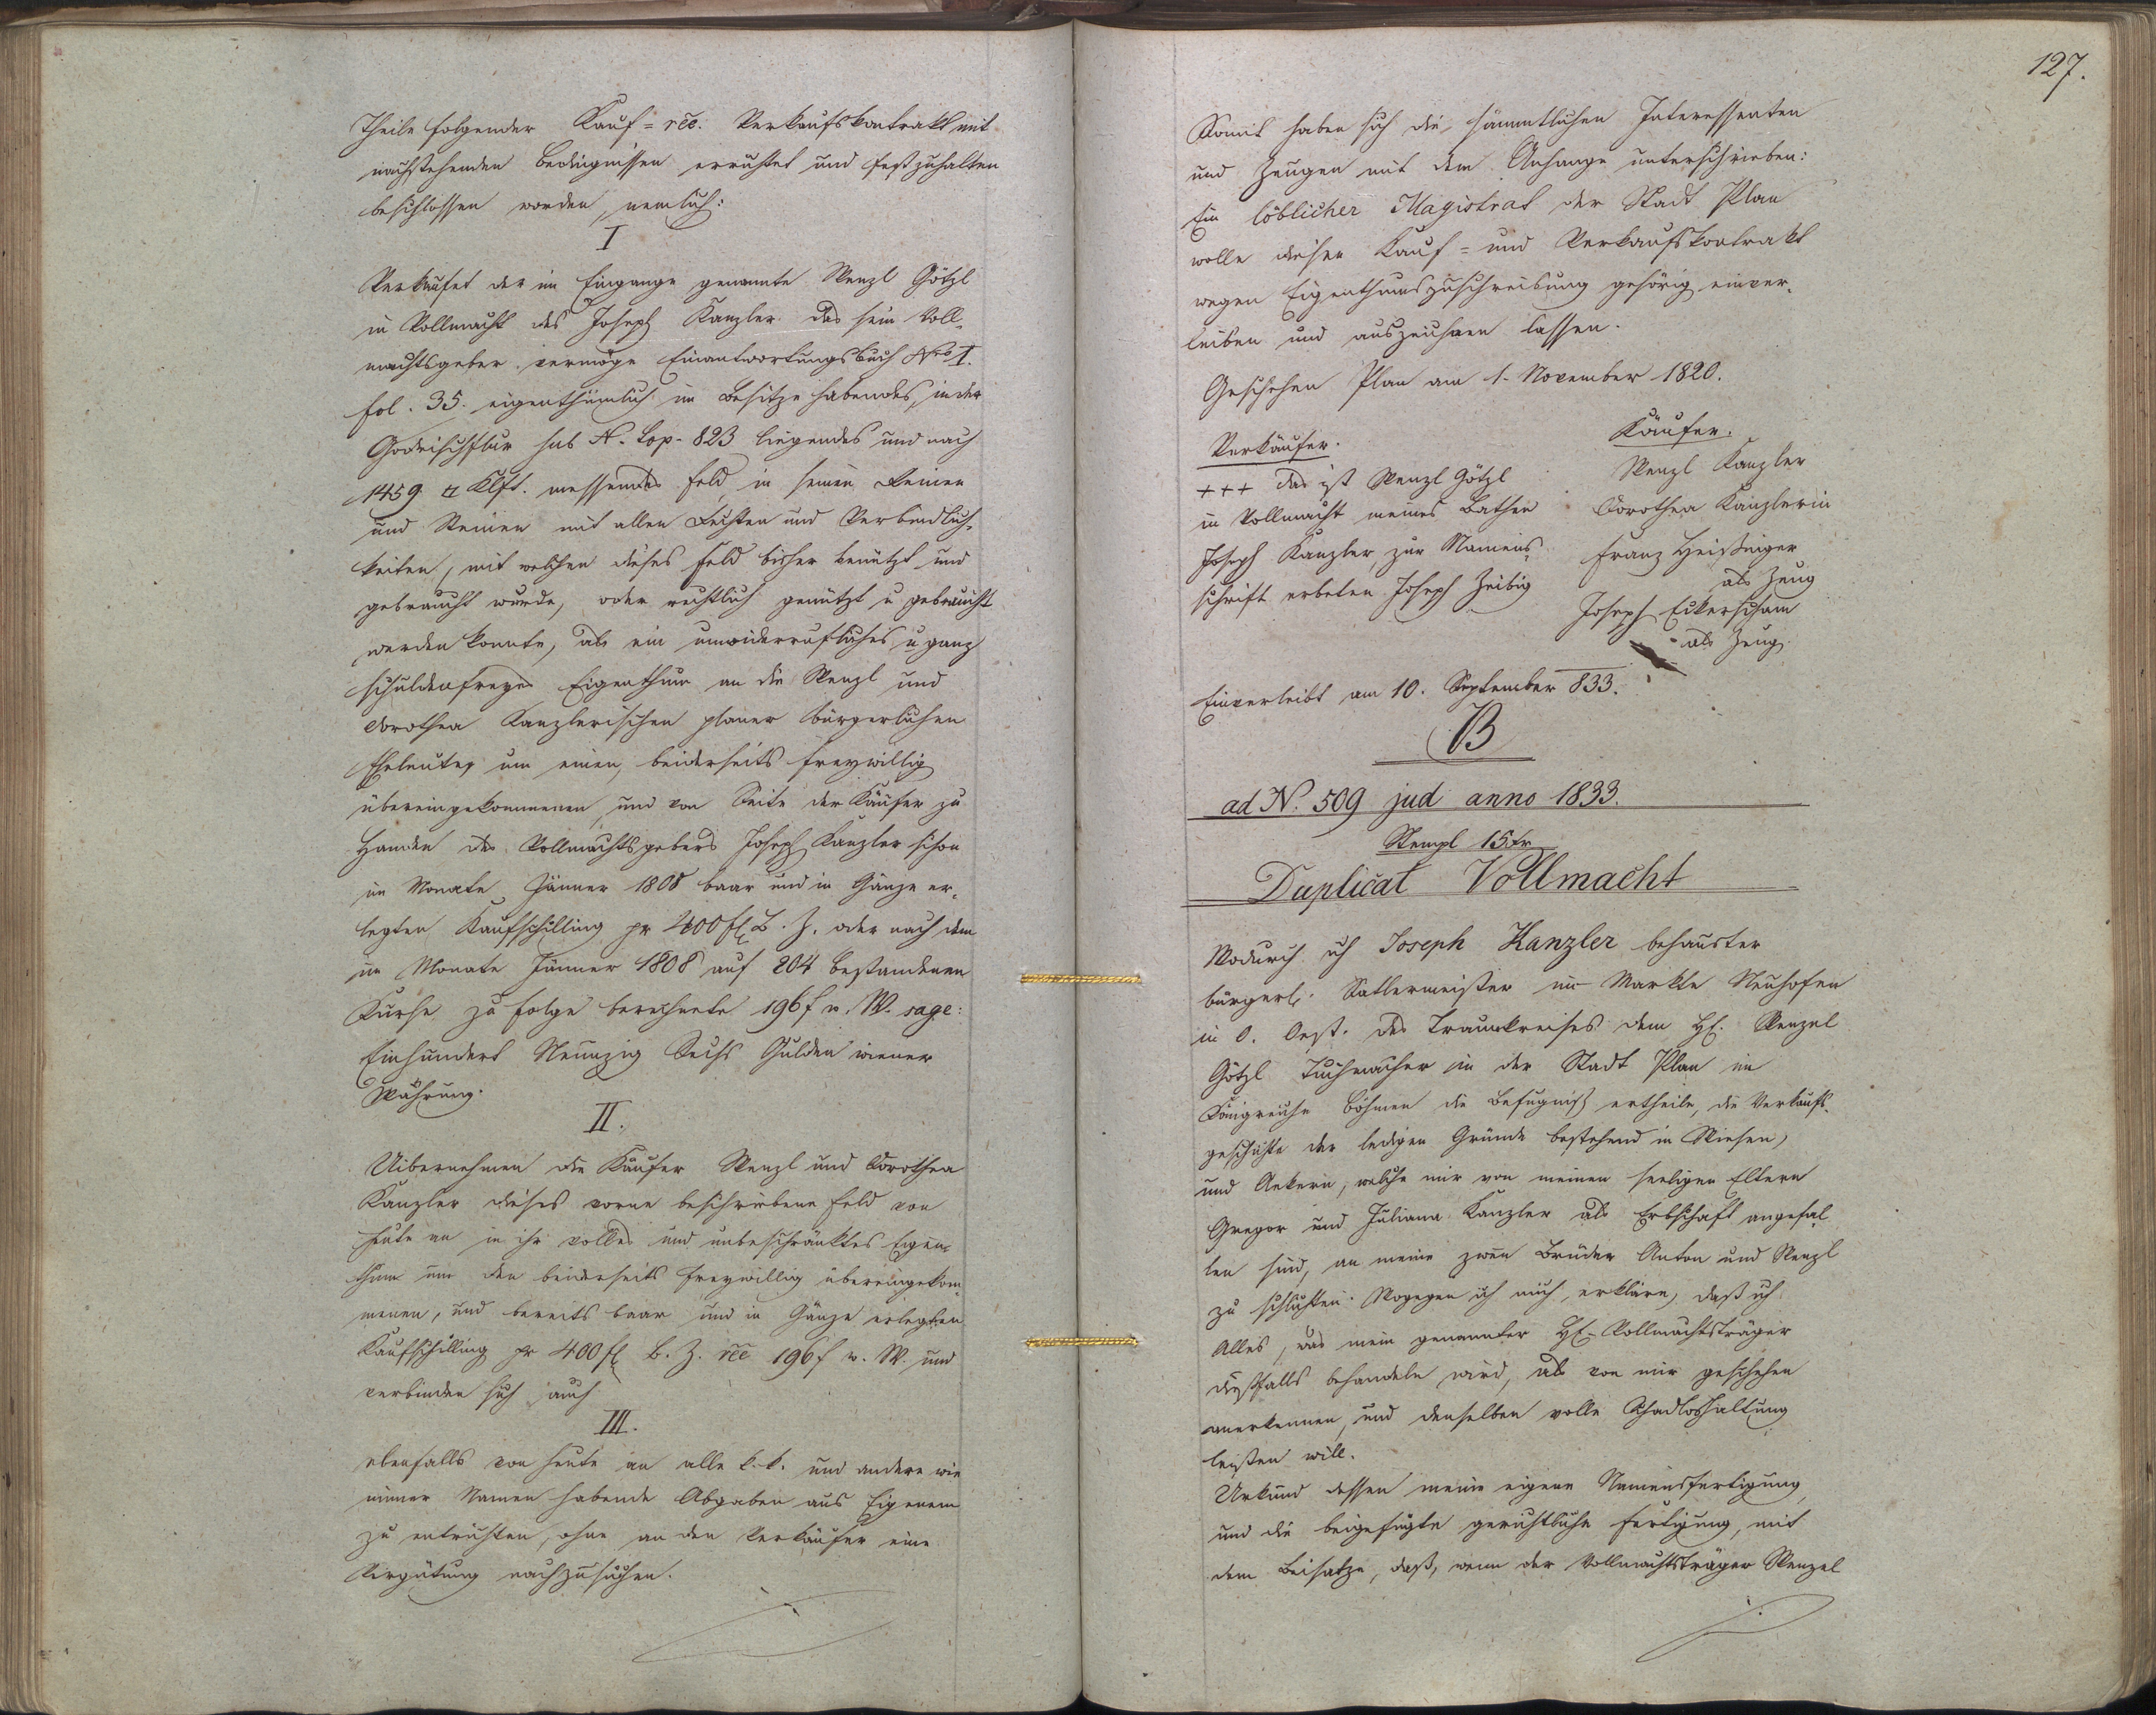 Theile folgender Kauf- rẽc. Verkaufskontrakt mit
nachstehenden Bedingnissen errichtet und festzuhalten
beschlossen worden, nemlich:
I
Verkaufet der im Eingange genannte Wenzl Götzl
in Vollmacht des Joseph Kanzler das sein Voll-
machtsgeber vermöge Einantwortungsbuch Nro I.
fol. 35. eigenthümlich im Besitze habendes, in der
sub N. Top. 823 liegendes und nach
1459 □ Klft. messendes Feld, in seinen Reinen
und Steinen mit allen Rechten und Verbindlich-
keiten, mit welchen dieses Feld bisher benützt und
gebraucht wurde, oder rechtlich genützt u gebraucht
werden konnte, als ein unwiderrufliches u ganz
schuldenfreyes Eigenthum an die Wenzl und
Dorothea Kanzlerischen planer bürgerlichen
Eheleute, um einen, beiderseits freywillig
übereingekommenen, und von Seite der Käufer zu
Handen des Vollmachtsgebers Joseph Kanzler schon
im Monate Jänner 1808 baar und in Gänze er-
legten Kaufschilling pr 400 fl B. Z. oder nach dem
im Monate Jänner 1808 auf 204 bestandenen
Kurse zu Folge berechnete 196 f w. W. sage:
Einhundert Neunzig Sechs Gulden wiener
Währung.
II.
Uibernehmen die Käufer Wenzl und Dorothea
Kanzler dieses vorne beschriebene Feld von
heute an in ihr volles und unbeschränktes Eigen-
thum um den beiderseits freywillig übereingekom-
menen, und bereits baar und in Gänze erlegten
Kaufschilling pr 400 fl B. Z. rẽc 196 f w. W. und
verbinden sich auch
III.
ebenfalls von heute an alle k. k. und andere wie
immer Namen habende Abgaben aus Eigenem
zu entrichten, ohne an den Verkäufer eine
Vergütung nachzusuchen.
127.
Somit haben sich die sämmtlichen Interessenten
und Zeugen mit dem Anhange unterschrieben:
Ein löblicher Magistrat der Stadt Plan
wolle diesen Kauf- und Verkaufskontrakt
wegen Eigenthumszuschreibung gehörig einver-
leiben und auszeichnen lassen.
Geschehen Plan am 1. November 1820.
Verkäufer.
+++ das ist Wenzl Götzl
in Vollmacht meines Bathen
Joseph Kanzler, zur Namens-
schrift erbeten Joseph Zeibig
Käufer.
Wenzl Kanzler
Dorothea Kanzlerin
Franz
als Zeug
Joseph
als Zeug.
Einverleibt am 10. September 833.
B
ad N. 509 jud anno 1833.
Stempl 15 kr
Duplicat Vollmacht
Wodurch ich Joseph Kanzler behauster
bürgerl. Satlermeister im Markte Neuhofen
in O. Oest. des Traunkreises dem H. Wenzel
Götzl Tuchmacher in der Stadt Plan im
Königreiche Böhmen die Befugniß ertheile, die Verkaufs-
geschäfte der ledigen Gründe bestehend in Wiesen,
und Aekern, welche mir von meinen seeligen Eltern
Gregor und Juliana Kanzler als Erbschaft angefal
len sind, an meine zwen Brüder Anton und Wenzl
zu schlichten. Wogegen ich mich erkläre, daß ich
Alles, was mein genannter H. Vollmachtsträger
dießfalls behandeln wird, als von mir geschehen
anerkennen, und denselben volle Schadloshaltung
leisten will.
Urkund dessen meine eigene Namensfertigung,
und die beigefügte gerichtliche Fertigung, mit
dem Beisatze, daß, wenn der Vollmachtsträger Wenzel